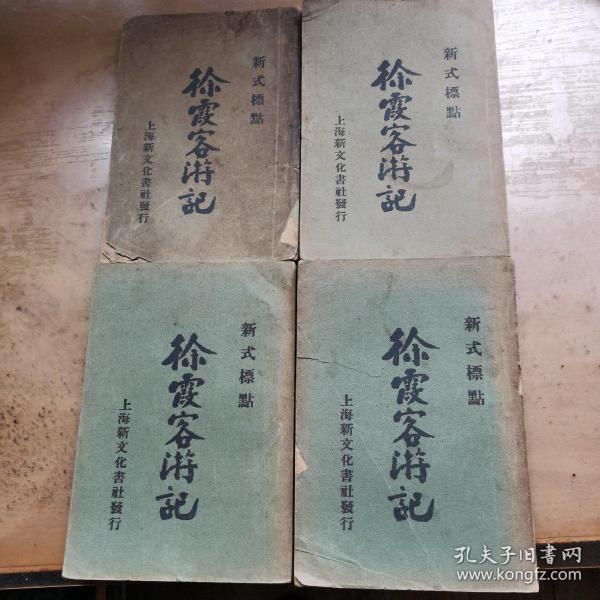 新式標點
徐霞客游記
上海新文化書社發行
新式標點
徐霞客游記
上海新文化書社發行
新式標點
徐霞客游記
上海新文化書社發行
新式標點
徐霞客游記
上海新文化書社發行
孔夫子旧书网
www.kongfz.com